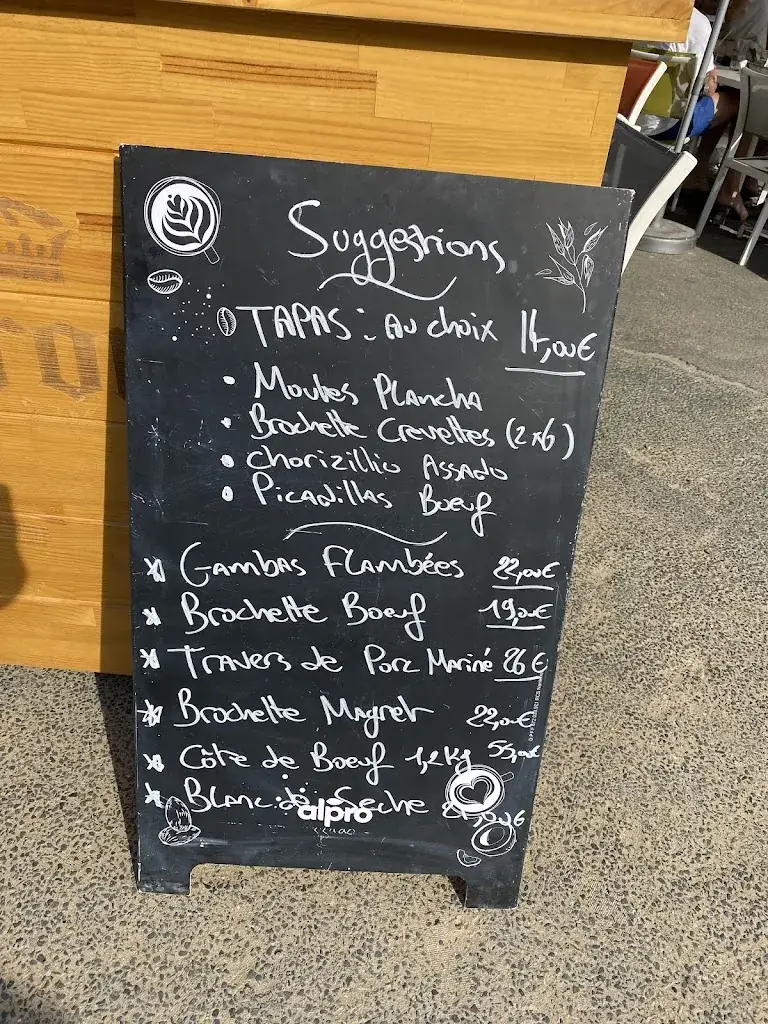 Suggestions
TAPAS : Au choix 14,00€
• Moules Plancha
• Brochette Crevettes (2x6)
• Chorizillio Assado
• Picadillas Boeuf
* Gambas Flambées 22,00€
* Brochette Boeuf 19,00€
* Travers de Porc Mariné 26€
* Brochette Magret 22,00€
* Côte de Boeuf 1,2kg 55,00€
* Blanc de Seche
alpro